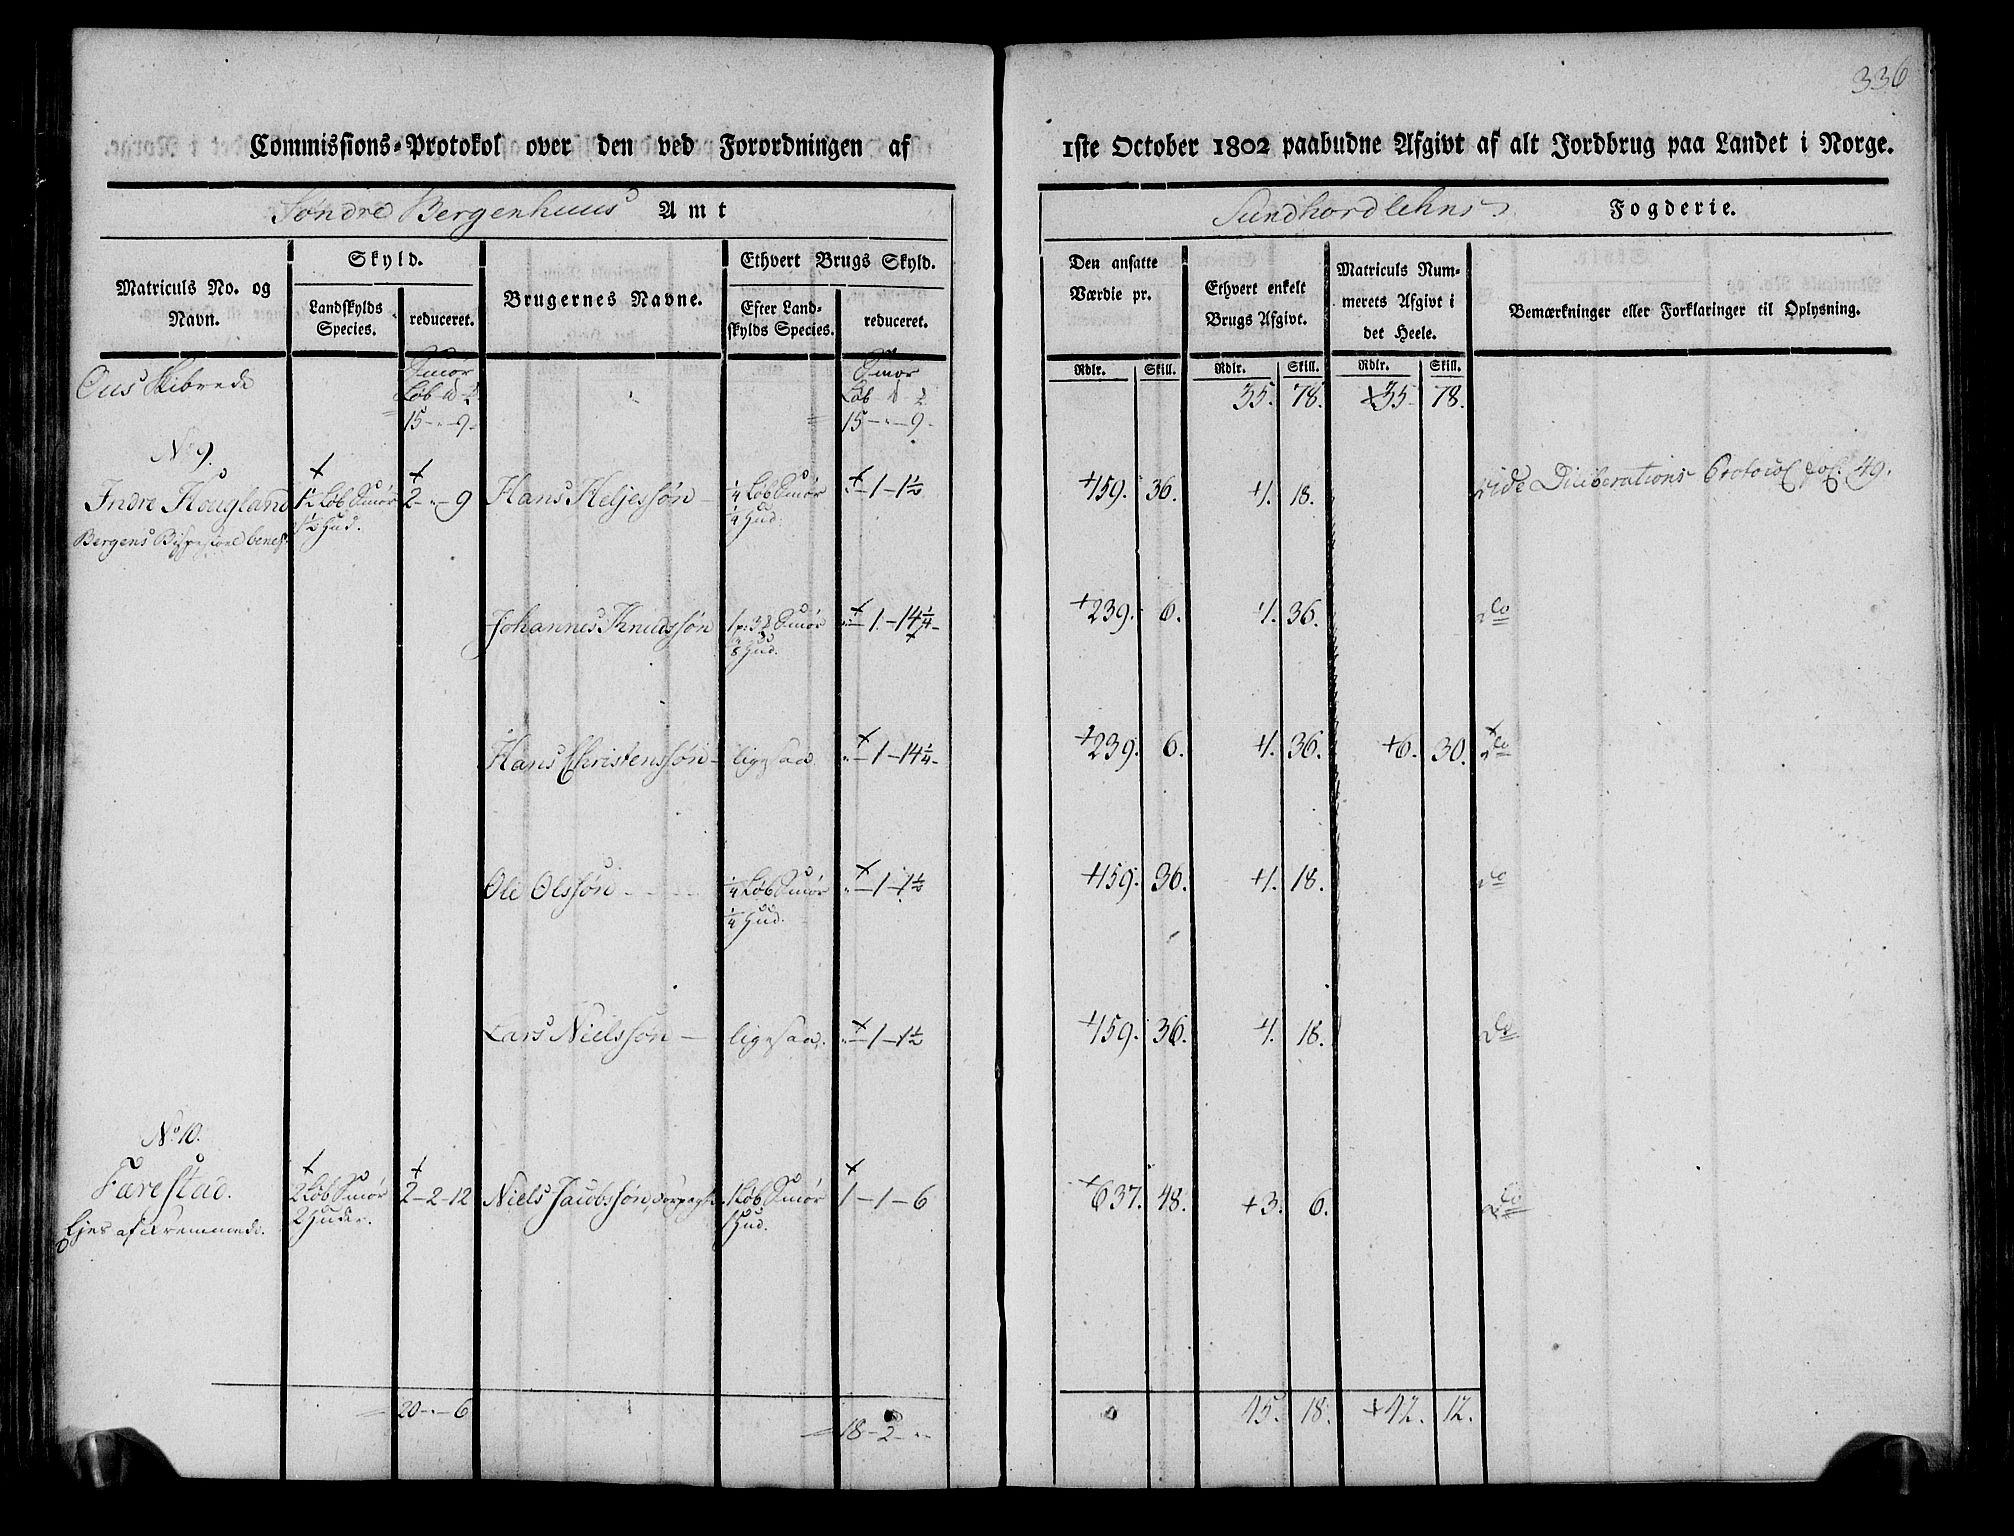 336
Commissions-Protokol over den ved Forordningen af 1ste October 1802 paabudne Afgivt af alt Jordbrug paa Landet i Norge.
Søndre Bergenhuus Amt Sundhordlehns Fogderie.
Matriculs No. og Navn. Skyld. Landskylds Species. reduceret. Brugernes Navne. Ethvert Brugs Skyld. Efter Landskylds Species. reduceret. Den ansatte Værdie pr. Ethvert enkelt Brugs Afgivt. Matriculs Nummerets Afgivt i det Heele. Bemærkninger eller Forklaringer til Oplysning.
Rdlr. Skill. Rdlr. Skill. Rdlr. Skill.
Ous Skibrede Smør Smør 35. 78. +35 78.
Løb Løb
15 - " - 9. 15 - " - 9.
No 9.
Indre Hougland 1½ Løb Smør 2 - " - 9 Hans Heljessøn ¼ Løb Smør " - 1 - 1½ +159. 36. +1. 18. vide Deliberations Protocol fol. 49.
Bergens Bispestoel benef. Hud. ¼ Hud.
Johannes Knudssøn Smør " - 1 - 14¼ +239. 6. 1. 36. do
Hud.
Hans Christenssøn ligesaa " - 1 - 14¼ +239. 6. +1. 36. +6. 30. do
Ole Olssøn ¼ Løb Smør " - 1 - 1½ +159. 36. +1. 18. do
¼ Hud.
Lars Nielssøn ligesaa. " - 1 - 1½ +159. 36. +1. 18. do
No 10.
Færestad. 2 Løb Smør 2 - 2 - 12 Niels Jacobssøn 1 Løb Smør 1 - 1 - 6 +637. 48. +3. 6. do
Ejes af Fremmede. 2 Huder. 1 Hud.
20 - " - 6 18 - 2 - " 45. 18. +42. 12.